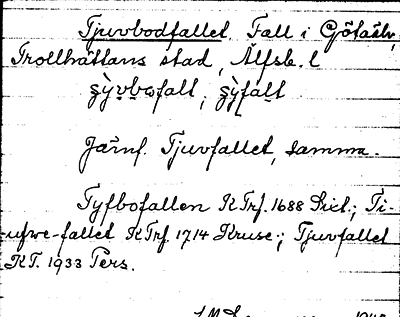 Tjuvbodfallet. Fall i Götaälv,
Trollhättans stad, Älfsb. l
Järnf. Tjuvfallet, samma.
Tyfbofallen KTrf. 1688 Dict.; Ti-
ufwe-fallet KTrf. 1714 Kruse.; Tjuvfallet
KT. 1933 Pers.